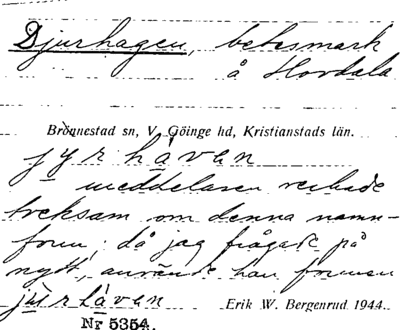 Djurhagen, betesmark
å Hovdala
Brönnestad sn, V. Göinge hd, Kristianstads län.
jyrháven
meddelaren verkade
tveksam om denna namn-
form; då jag frågade på
nytt, använde han formen
Erik W. Bergenrud 1944.
Nr 5354.